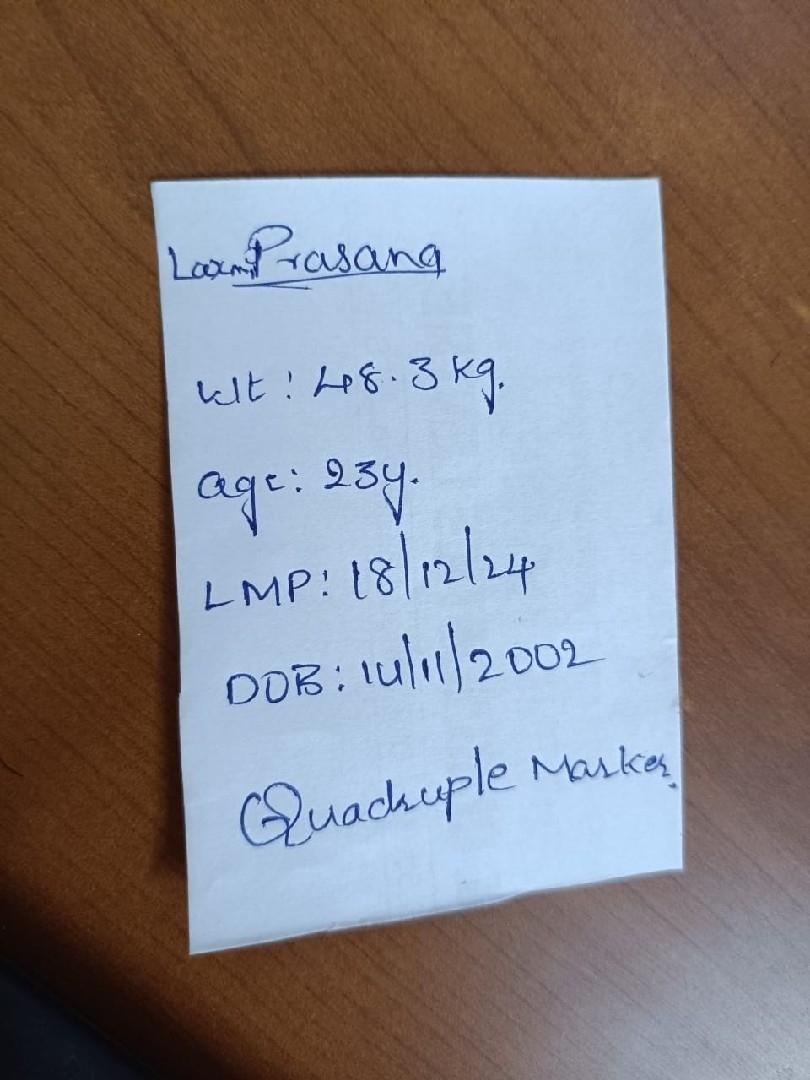 Laxmi Prasana
Wt: 48.3 kg.
age: 23y.
LMP: 18/12/24
DOB: 14/11/2002
Quadruple Marker.